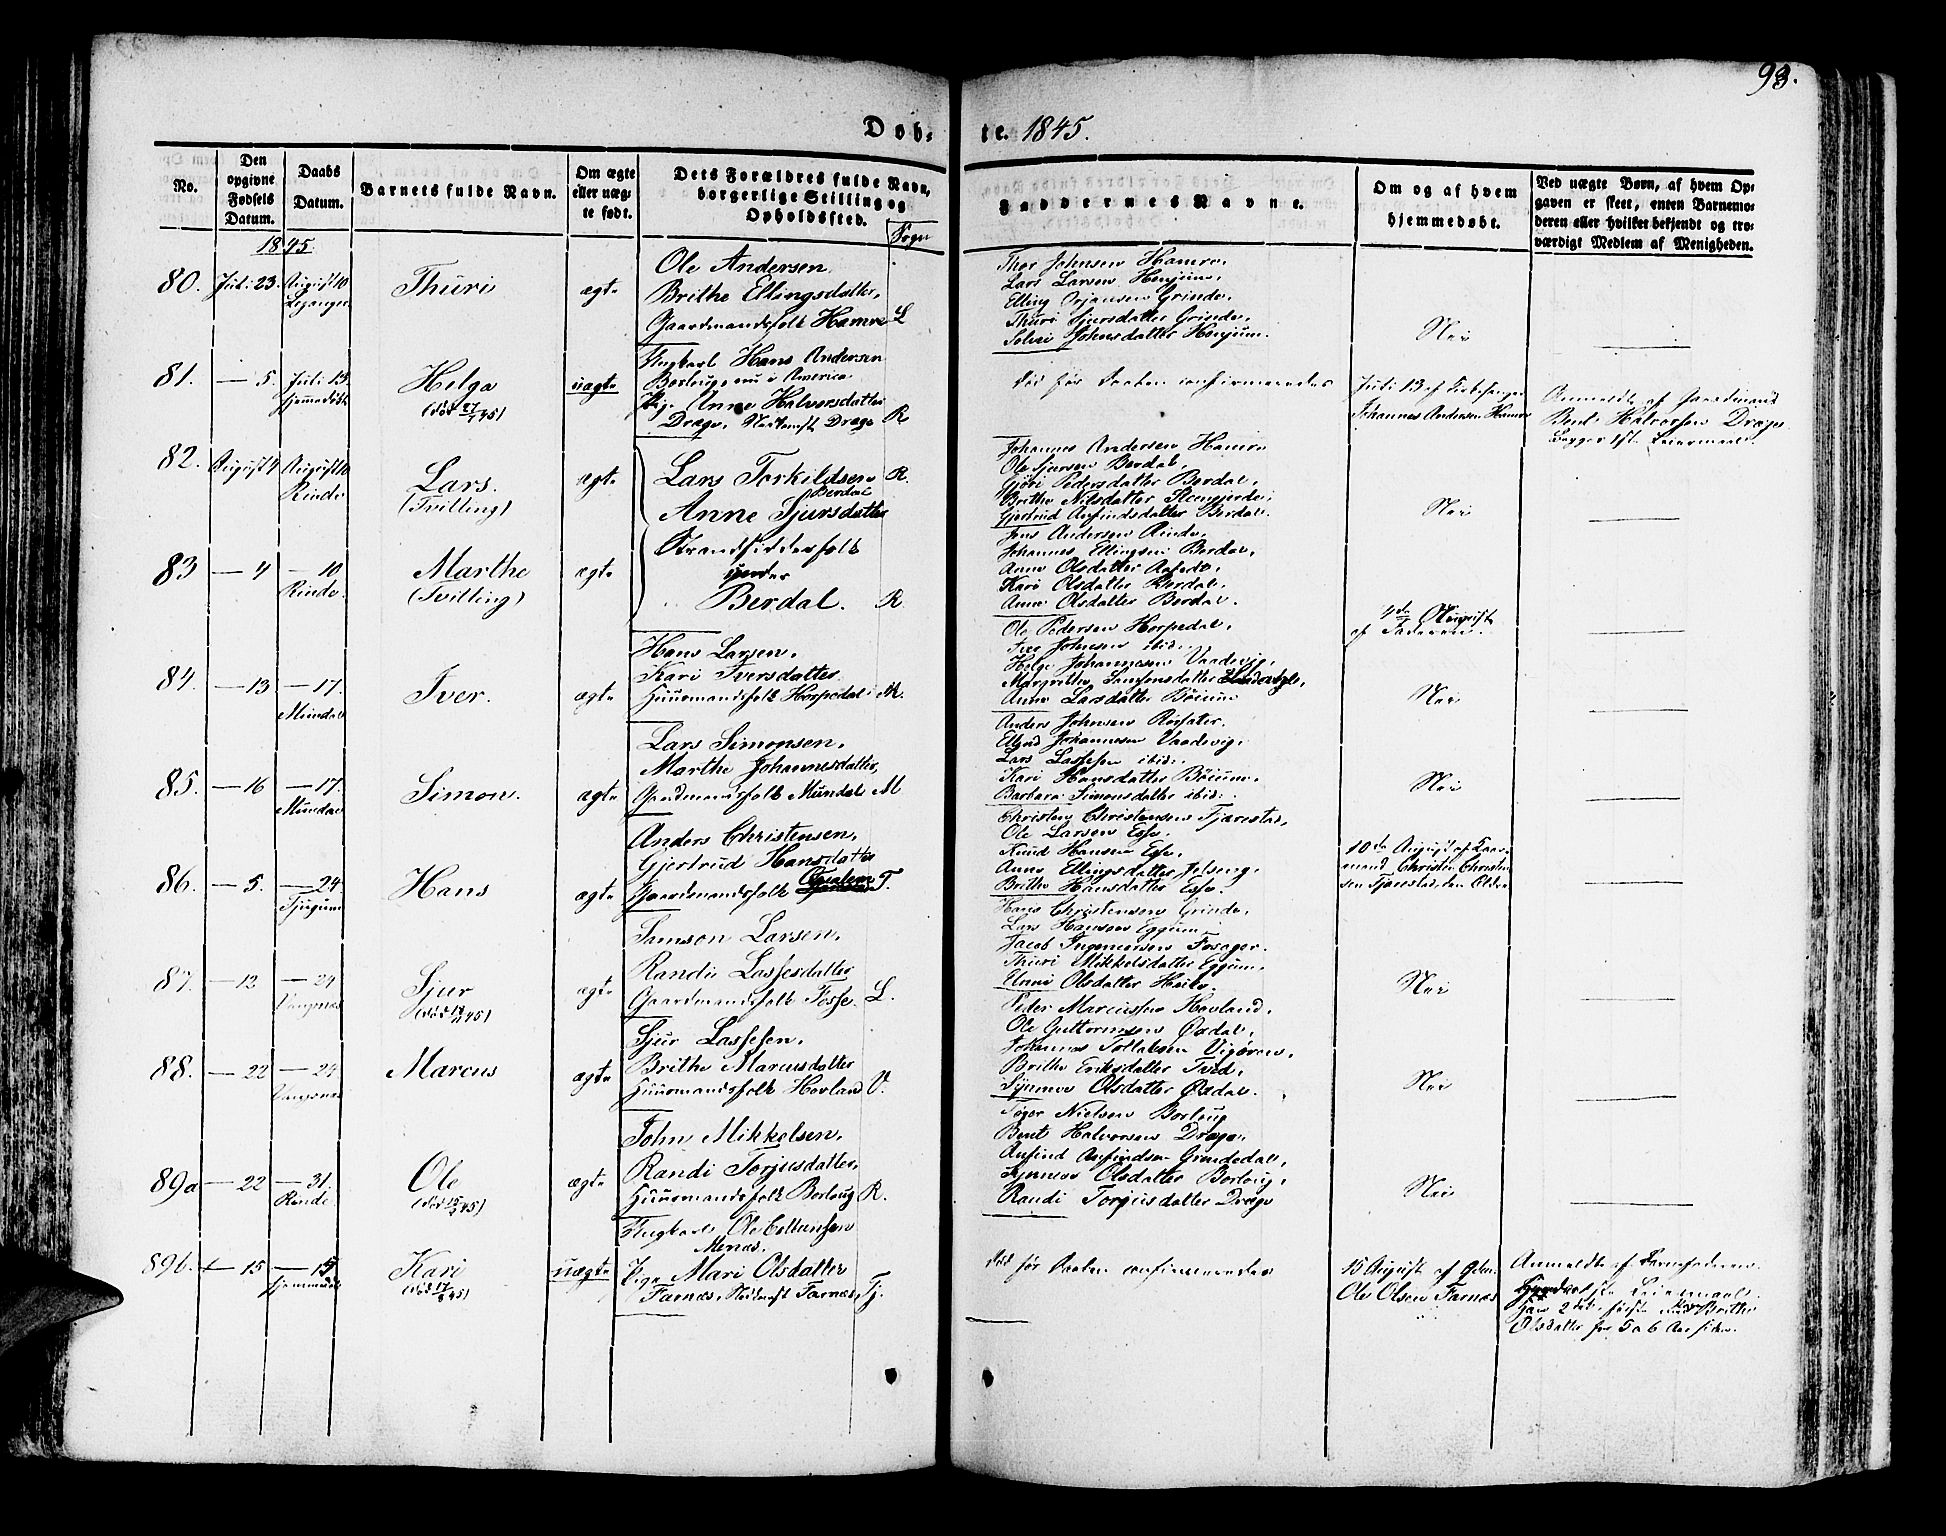 93.
Døb-
te. 1845.
No.
Den opgivne Fødsels Datum.
Daabs Datum.
Barnets fulde Navn.
Om ægte eller uægte født.
Dets Forældres fulde Navn, borgerlige Stilling og Opholdssted.
Sogn
Faddernes Navne.
Om og af hvem hjemmedøbt.
Ved uægte Børn, af hvem Opgaven er skeet, enten Barnemoderen eller hvilket bekjendt og troværdigt Medlem af Menigheden.
1845.
80. Juli 23. August 10 Thuri ægte
Ole Andersen
Brithe Ellingsdatter,
Gaardmandsfolk Hamre L
Thor Johnsen Hamre,
Lars Larsen Henjum,
Elling Orjansen Grinde,
Thuri Sjursdatter Grinde,
Solvi Johnsdatter Henjum.
Nei
81. — 5. Juli 13. Hjemmedøbt Helga uægte
Ungkarl Hans Andersen
Borlaug, nu i America
Pige Anne Halvorsdatter
Drægo, Drægo R
død før Daaben confirmeredes
Juli 13 af
Johannes Andersen Hamre
Anmeldt af Gaardmand
Bent Halvorsen Drægo.
Begges 1ste Leiermaal.
82. August 4 August 10 Rinde Lars. (Tvilling) ægte
Lars Torkildsen R.
Berdal
Anne Sjursdatter
Strandsidderfolk
under
Berdal. R
Johannes Andersen Hamre
Ole Sjursen Berdal,
Gjøri Pedersdatter Berdal,
Brithe Nilsdatter
Gjertrud Anfindsdatter Berdal.
Nei
83 — 4 — 10 Rinde. Marthe (Tvilling) ægte
Jens Andersen Rinde,
Johannes Ellingsen Berdal,
Anne Olsdatter
Kari Olsdatter Berdal,
Anne Olsdatter Berdal.
4de August
af Faderen.
84. — 13 — 17. Mundal Iver. ægte
Hans Larsen,
Kari Iversdatter
Huusmandsfolk Horpedal M.
Ole Pedersen Horpedal,
Iver Johnsen ibid:
Helge Johannesen Vaadevig,
Margrethe Samsonsdatter
Anne Larsdatter Bøium
Nei
85. — 16 — 17. Mundal Simon. ægte
Lars Simonsen,
Marthe Johannesdatter,
Gaardmandsfolk Mundal M
Anders Johnsen
Johannesen Vaadevig,
Lars Lassesen ibid:
Kari Hansdatter Bøium,
Barbara Simonsdatter ibid:
Nei
86. — 5. — 24 Tjugum Hans ægte
Anders Christensen,
Gjertrud Hansdatter
Gaardmandsfolk T.
Christen Christensen Tjærestad,
Ole Larsen Esse.
Knud Hansen Esse,
Anne Ellingsdatter
Brithe Hansdatter Esse.
10de August af Gaard-
mand Christen Christen-
sen Tjærestad, den Ældre
87. — 12 — 24 Vangsnes Sjur ægte
Samson Larsen,
Randi Lassesdatter
Gaardmandsfolk Fosse. L.
Hans Christensen Grinde,
Lars Hansen Eggum
Jacob Ingemarsen
Thuri Mikkelsdatter Eggum,
Olsdatter
Nei
88. — 22 — 24 Vangsnes Marcus ægte
Sjur Lassesen,
Brithe Marcusdatter
Huusmandsfolk Hovland V.
Peder Marcussen Hovland,
Ole Guttormsen Øvdal,
Johannes Tollefsen Vigøren,
Brithe Eriksdatter Tved,
Synneve Olsdatter Øvdal.
Nei
89a — 22 — 31. Rinde. Ole ægte
John Mikkelsen,
Randi Torjusdatter,
Huusmandsfolk Borlaug R.
Nielsen Borlaug
Bent Halvorsen Drægo,
Anfind Anfindsen Grindedal,
Synneve Olsdatter Borlaug,
Randi Torjusdatter Drægo
Nei
89b. — 15 — 15. Hjemmedøbt Kari uægte
Ungkarl Ole
Menes.
Pige Mari Olsdatter
Farnæs, Farnæs, Tj.
død før Daaben confirmeredes
15 August af
Ole Olsen Farnæs
Anmeldt af Barnefaderen.
Leiermaal.
2det, første med Brithe
Olsdatter for 5 a 6 Aar siden.